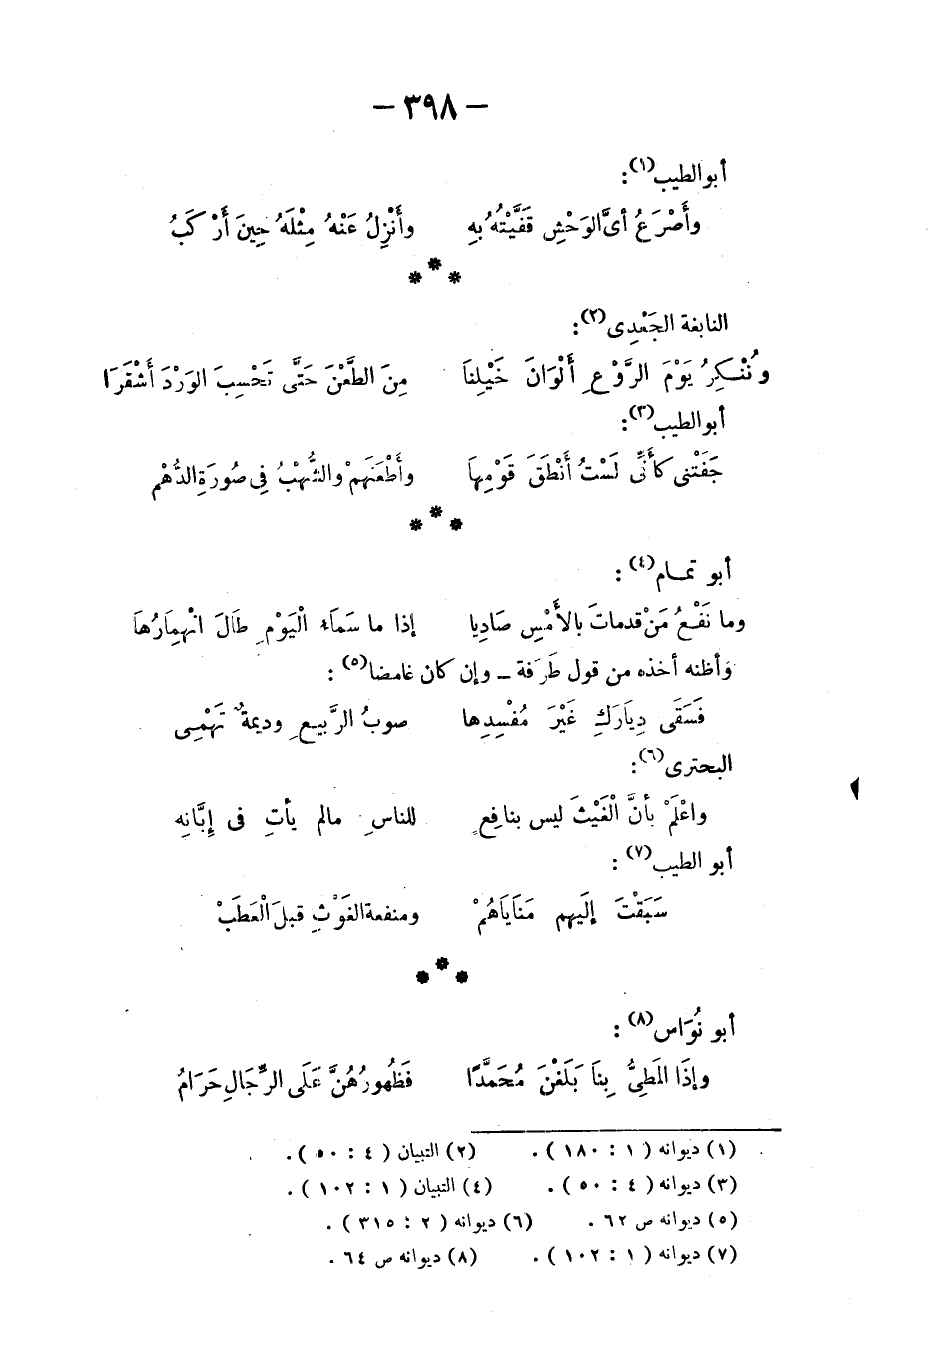 — ٣٩٨ —
أبو الطيب (١) :
وأَصْرَعُ أىَّ الوَحْشِ قَفَّيْتُهُ بِهِ وأَنْزِلُ عَنْهُ مِثْلَهُ حِينَ أَرْكَبُ
* * *
النابغة الجَعْدِى (٢) :
ونُنْكِرُ يَوْمَ الرَّوْعِ أَلْوَانَ خَيْلِنَا مِنَ الطَّعْنَ حَتَّى تَحْسِبَ الوَرْدَ أَشْقَرَا
أبو الطيب (٣) :
جَفَتْنى كأَنِّى لَسْتُ أَنْطَقَ قَوْمِهَا وأَطْعَنَهمْ والشُّهْبُ فِى صُورَةِ الدُّهْمِ
* * *
أبو تمـام (٤) :
وما نَفْعُ مَنْ قدماتَ بالأَمْسِ صَادِيا إذا ما سَمَاء الْيَوْمِ طَالَ انْهِمَارُهَا
وَأظنه أخذه من قول طَرَفة ــ وإن كان غامضا (٥) :
فَسَقَى دِيَارَكِ غَيْرَ مُفْسِدِها صوبُ الرَّبيعِ وديمةٌ تَهْمِـى
البحترى (٦) :
واعْلَمْ بأنَّ الْغَيْثَ ليس بنافِعٍ للناسِ مالم يأتِ فى إِبَّانِه
أبو الطيب (٧) :
سَبَقْتَ إلَيهم مَنَايَاهُمْ ومنفعة الغَوْثِ قبلَ الْعَطَبْ
* * *
أبو نُوَاس (٨) :
وإذَا المَطِىُّ بِنا بَلَغْنَ مُحَمَّدًا فَظُهورُهُنَّ عَلَى الرِّجَالِ حَرَامُ
(١) ديوانه ( ١ : ١٨٠ ) . (٢) التبيان ( ٤ : ٥٠ ) .
(٣) ديوانه ( ٤ : ٥٠ ) . (٤) التبيان ( ١ : ١٠٢ ) .
(٥) ديوانه ص ٦٢ . (٦) ديوانه ( ٢ : ٣١٥ ) .
(٧) ديوانه ( ١ : ١٠٢ ) . (٨) ديوانه ص ٦٤ .